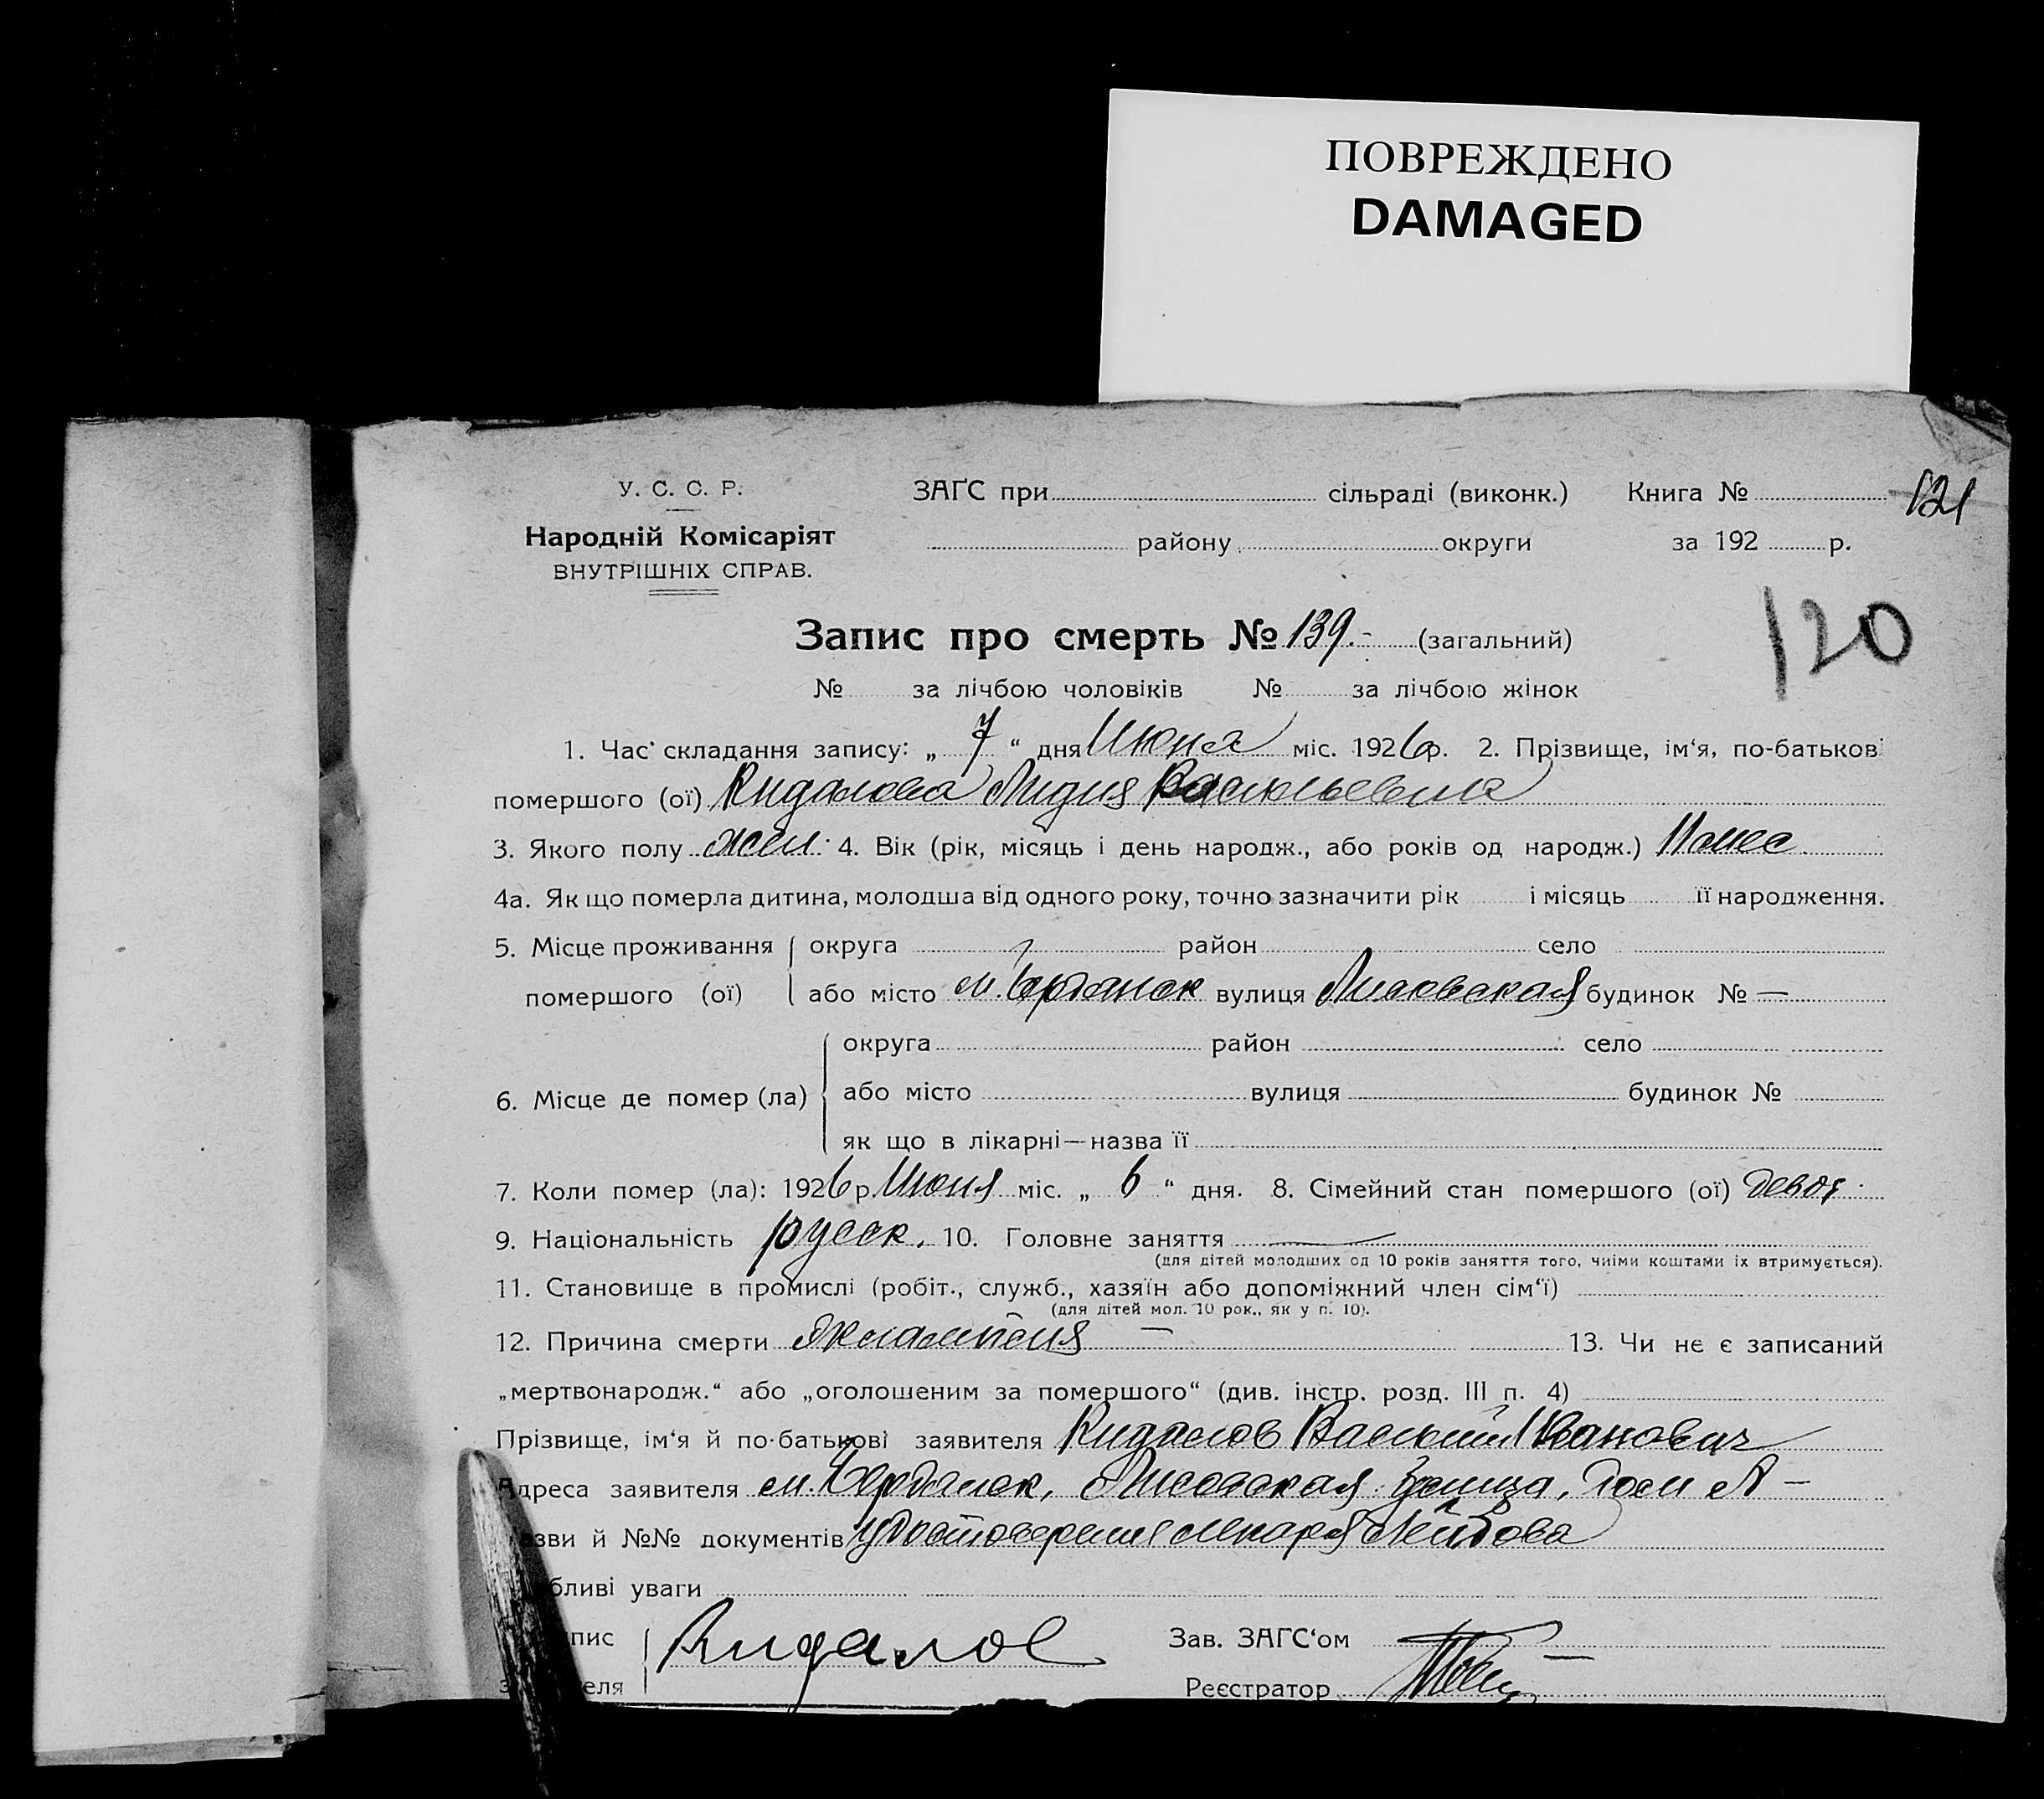 ПОВРЕЖДЕНО
DAMAGED
У. С. С. Р.
Народній Комісаріят
ВНУТРІШНІХ СПРАВ.
ЗАГС при сільраді (виконк.) Книга № 121
району округи за 192 р.
120
Запис про смерть № 139.- (загальний)
№ за лічбою чоловіків № за лічбою жінок
1. Час складання запису: „ 7 “ дня Июня міс. 1926 р. 2. Прізвище, ім‘я, по-батькові
помершого (ої) Кидалова Лидия Васильевна
3. Якого полу жен. 4. Вік (рік, місяць і день народж., або років од народж.) 11 мес.
4а. Як що померла дитина, молодша від одного року, точно зазначити рік і місяць її народження.
5. Місце проживання округа район село
помершого (ої) або місто м. Бердянск вулиця Лисковская будинок № —
округа район село
6. Місце де помер (ла) або місто вулиця будинок №
як що в лікарні—назва її
7. Коли помер (ла): 1926 р. Июня міс. „ 6 “ дня. 8. Сімейний стан помершого (ої)
9. Національність русск. 10. Головне заняття —
(для дітей молодших од 10 років заняття того, чиїми коштами їх втримується).
11. Становище в промислі (робіт., служб., хазяїн або допоміжний член сім‘ї)
(для дітей мол. 10 рок., як у п. 10).
12. Причина смерти Эклампсия — 13. Чи не є записаний
„мертвонародж.“ або „оголошеним за помершого“ (див. інстр. розд. III п. 4)
Прізвище, ім‘я й по-батькові заявителя Кидалов Василий Иванович
Адреса заявителя м. Бердянск, улица, дом №—
азви й №№ документів удостоверение лекаря
бливі уваги
пис Кидалов Зав. ЗАГС‘ом
еля Реєстратор